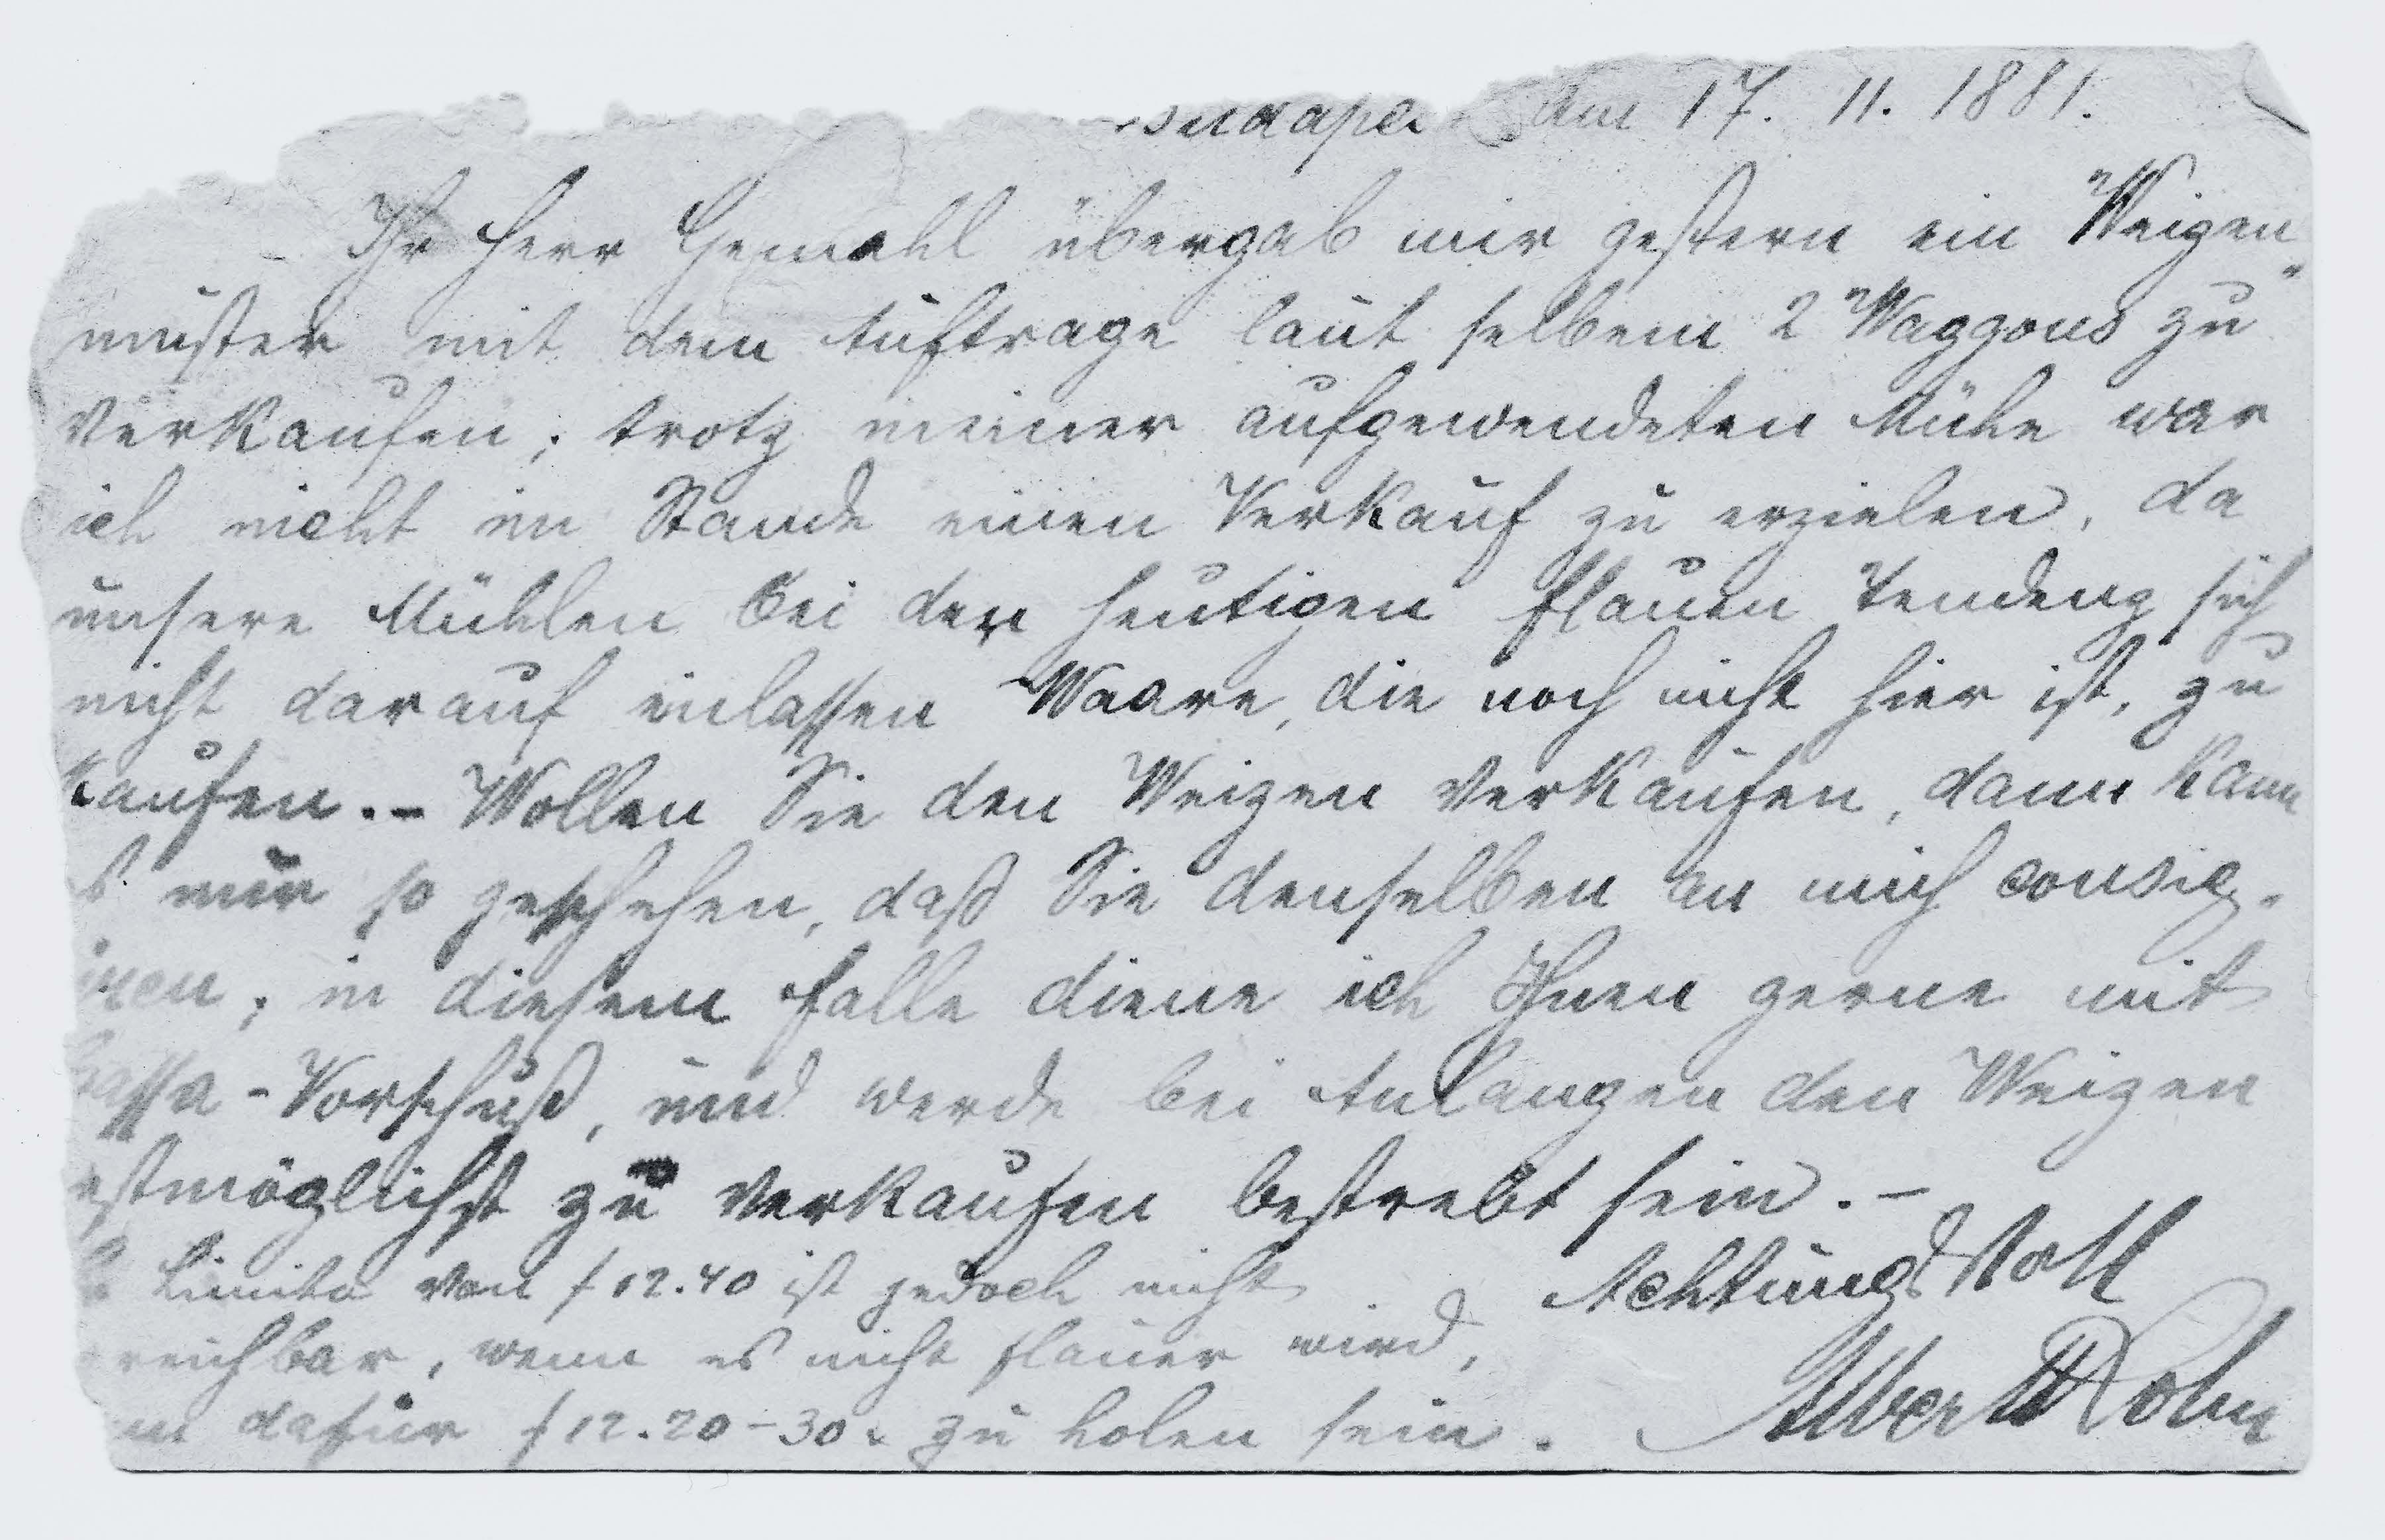 am 17. 11. 1881.
Ihr Herr Gemahl übergab mir gestern ein Weizen„
muster mit dem Auftrage laut selbem 2 Waggons zu
verkaufen; trotz meiner aufgewendeten Mühe war
ich nicht im Stande einen Verkauf zu erzielen, da
unsere Mühlen bei der heutigen flauen Tendenz sich
nicht darauf einlassen Waare, die noch nicht hier ist, zu
kaufen. – Wollen Sie den Weizen verkaufen, dann kann
s nur so geschehen, daß Sie denselben an mich consig-
iren; in diesem Falle diene ich Ihnen gerne mit
Cassa-Vorschuß, und werde bei Anlangen den Weizen
estmöglichst zu verkaufen bestrebt sein. –
Limito von f 12.40 ist jedoch nicht
reichbar, wenn es nicht flauer wird,
dafür f 12.20–30 zu holen sein.
Achtungsvoll
Albert Kohn